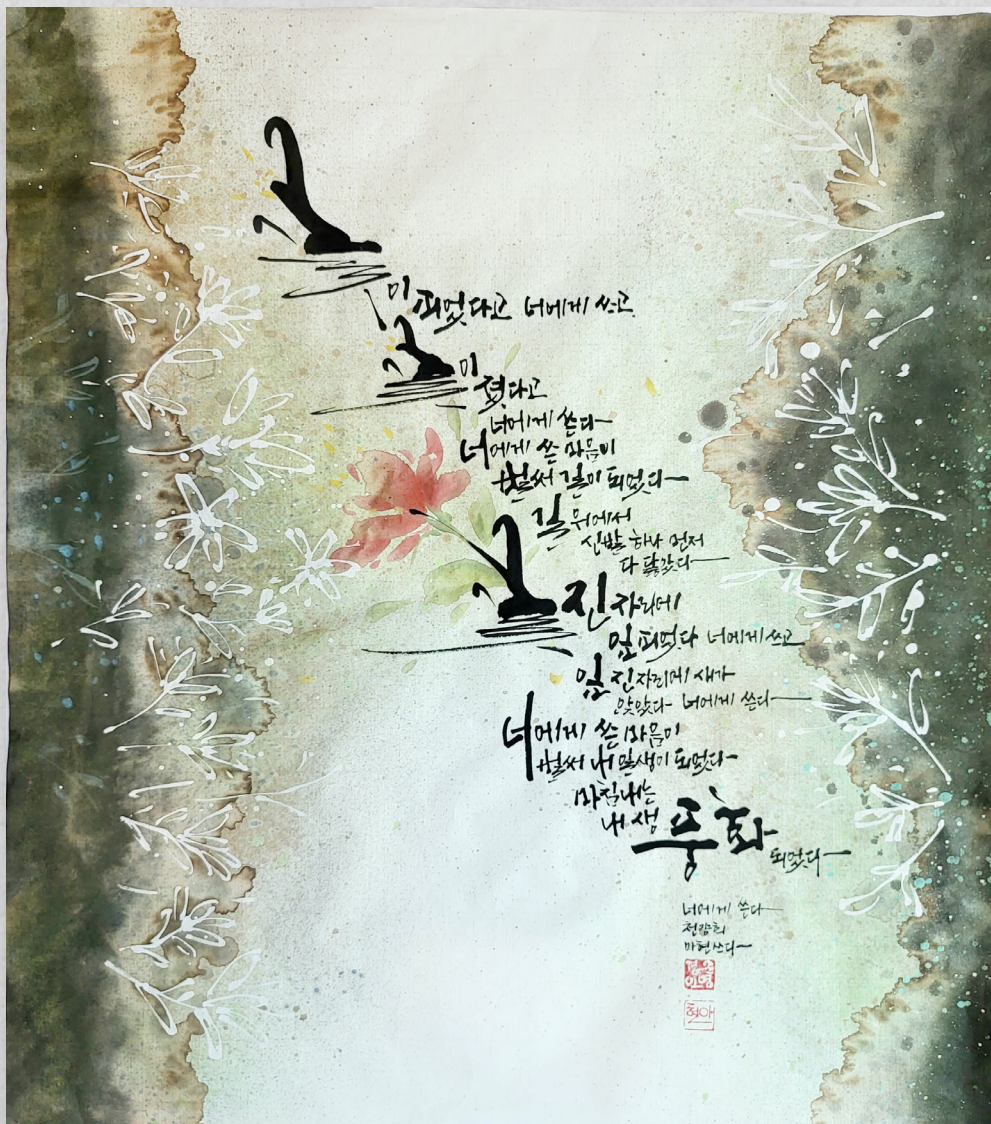 꽃이 피었다고 너에게 쓰고
꽃이 졌다고
너에게 쓴다
너에게 쓴 마음이
벌써 길이 되었다
길 위에서
신발 하나 먼저
다 닳았다
꽃 진 자리에
잎 피었다 너에게 쓰고
잎 진 자리에 새가
앉았다 너에게 쓴다
너에게 쓴 마음이
벌써 내 일생이 되었다
마침내는
내 생 풍화 되었다
너에게 쓴다
천양희
쓰다